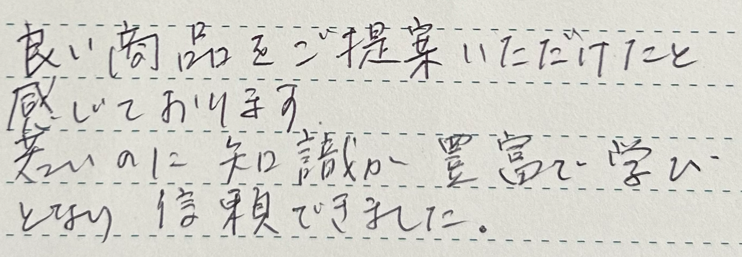 良い商品をご提案いただけたと
感じております
若いのに知識が豊富で学び
となり信頼できました。